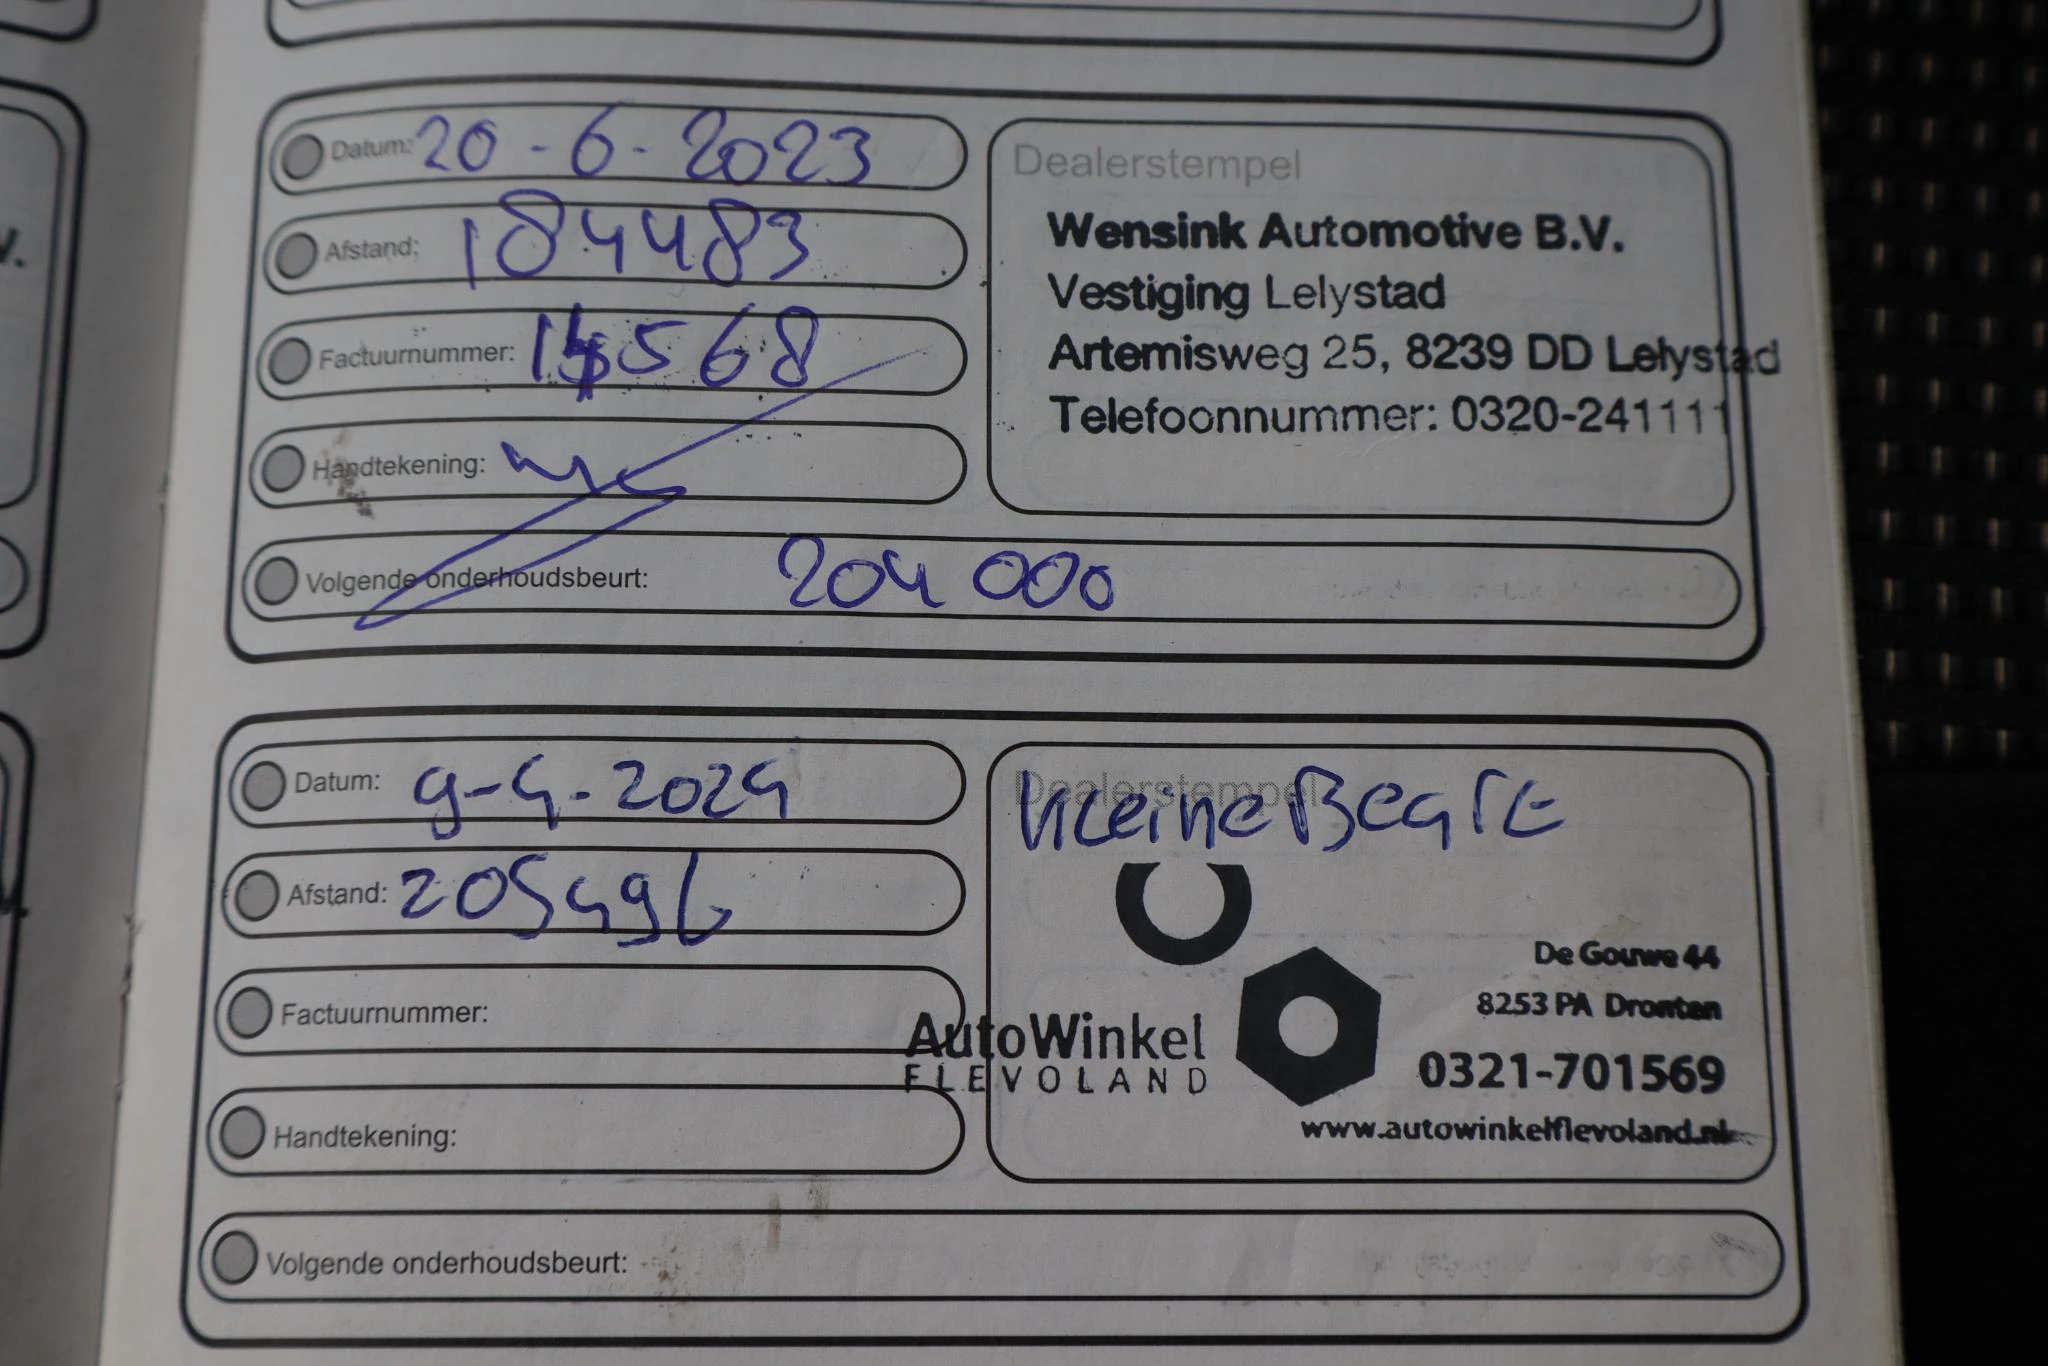 Datum: 20-6-2023
Afstand: 184483
Factuurnummer: 568
Handtekening:
Volgende onderhoudsbeurt: 204 000
Dealerstempel
Wensink Automotive B.V.
Vestiging Lelystad
Artemisweg 25, 8239 DD Lelystad
Telefoonnummer: 0320-241111
Datum: 9-4-2024
Afstand: 205496
Factuurnummer:
Handtekening:
Volgende onderhoudsbeurt:
Dealerstempel
Kleine Beurt
AutoWinkel
FLEVOLAND
De Gouwe 44
8253 PA Dronten
0321-701569
www.autowinkelflevoland.nl